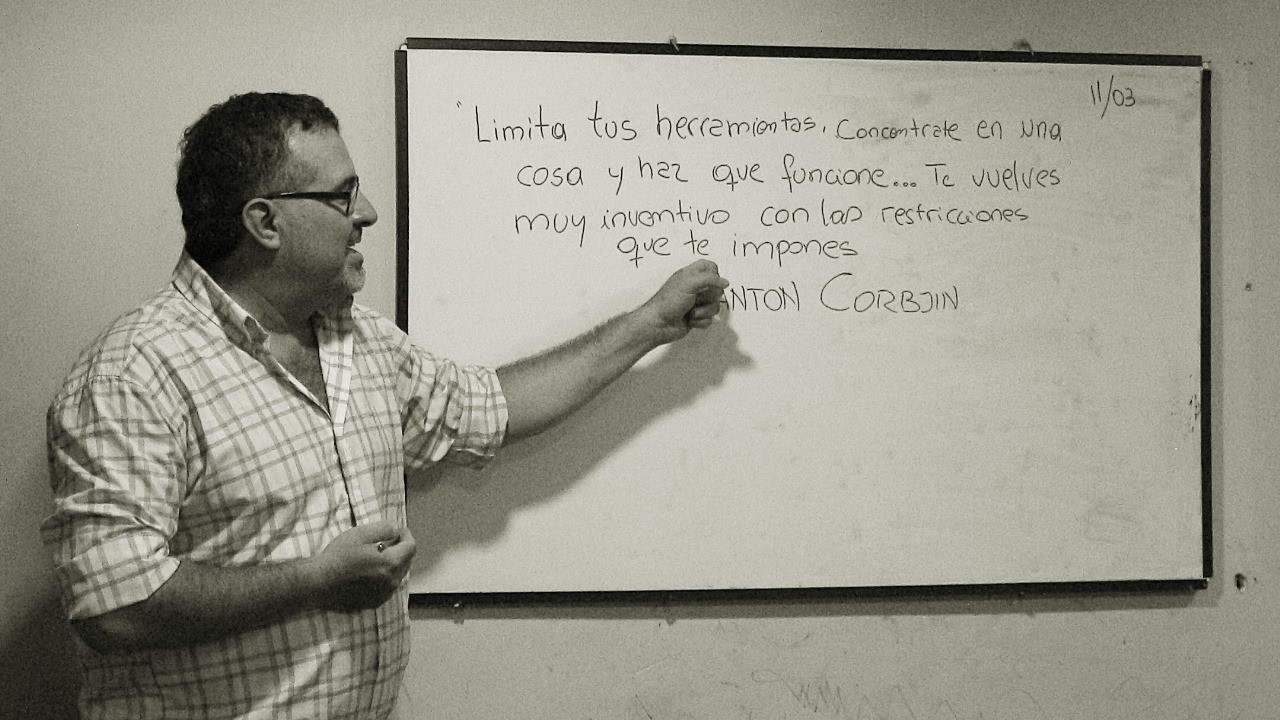 11/03
"Limita tus herramientas. Concentrate en una
cosa y haz que funcione... Te vuelves
muy inventivo con las restricciones
que te impones
ANTON CORBJIN